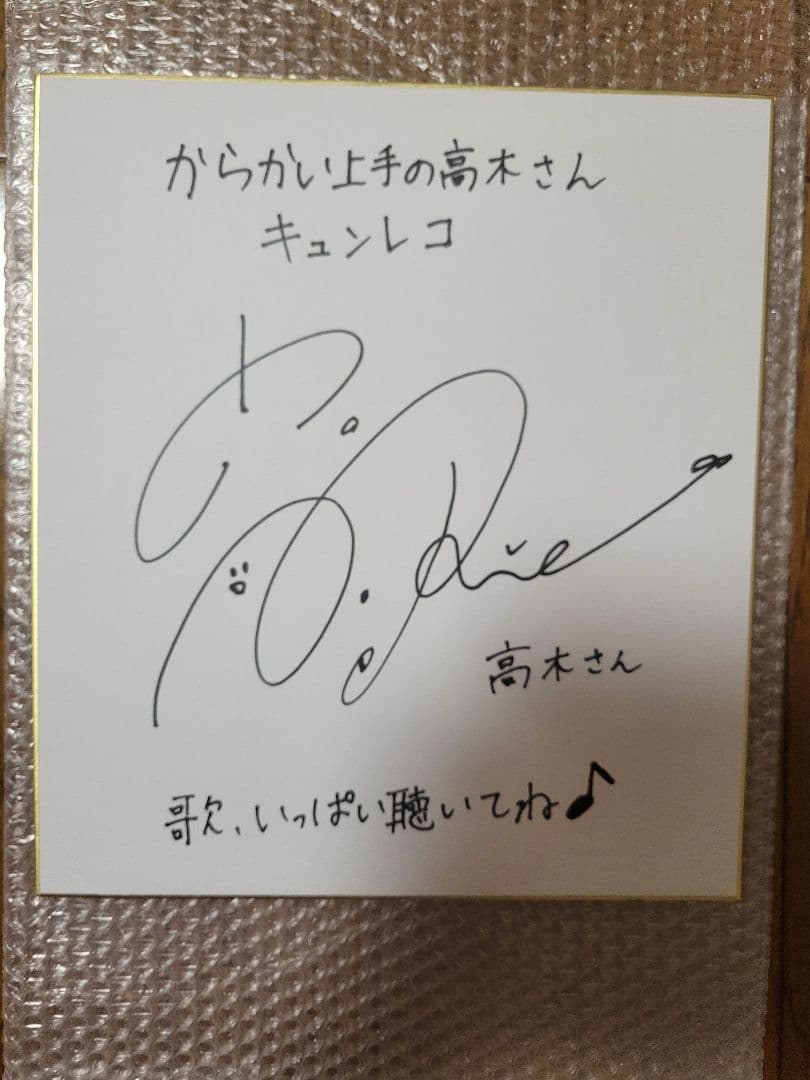 からかい上手の高木さん
キュンレコ
Rie
高木さん
歌、いっぱい聴いてね♪